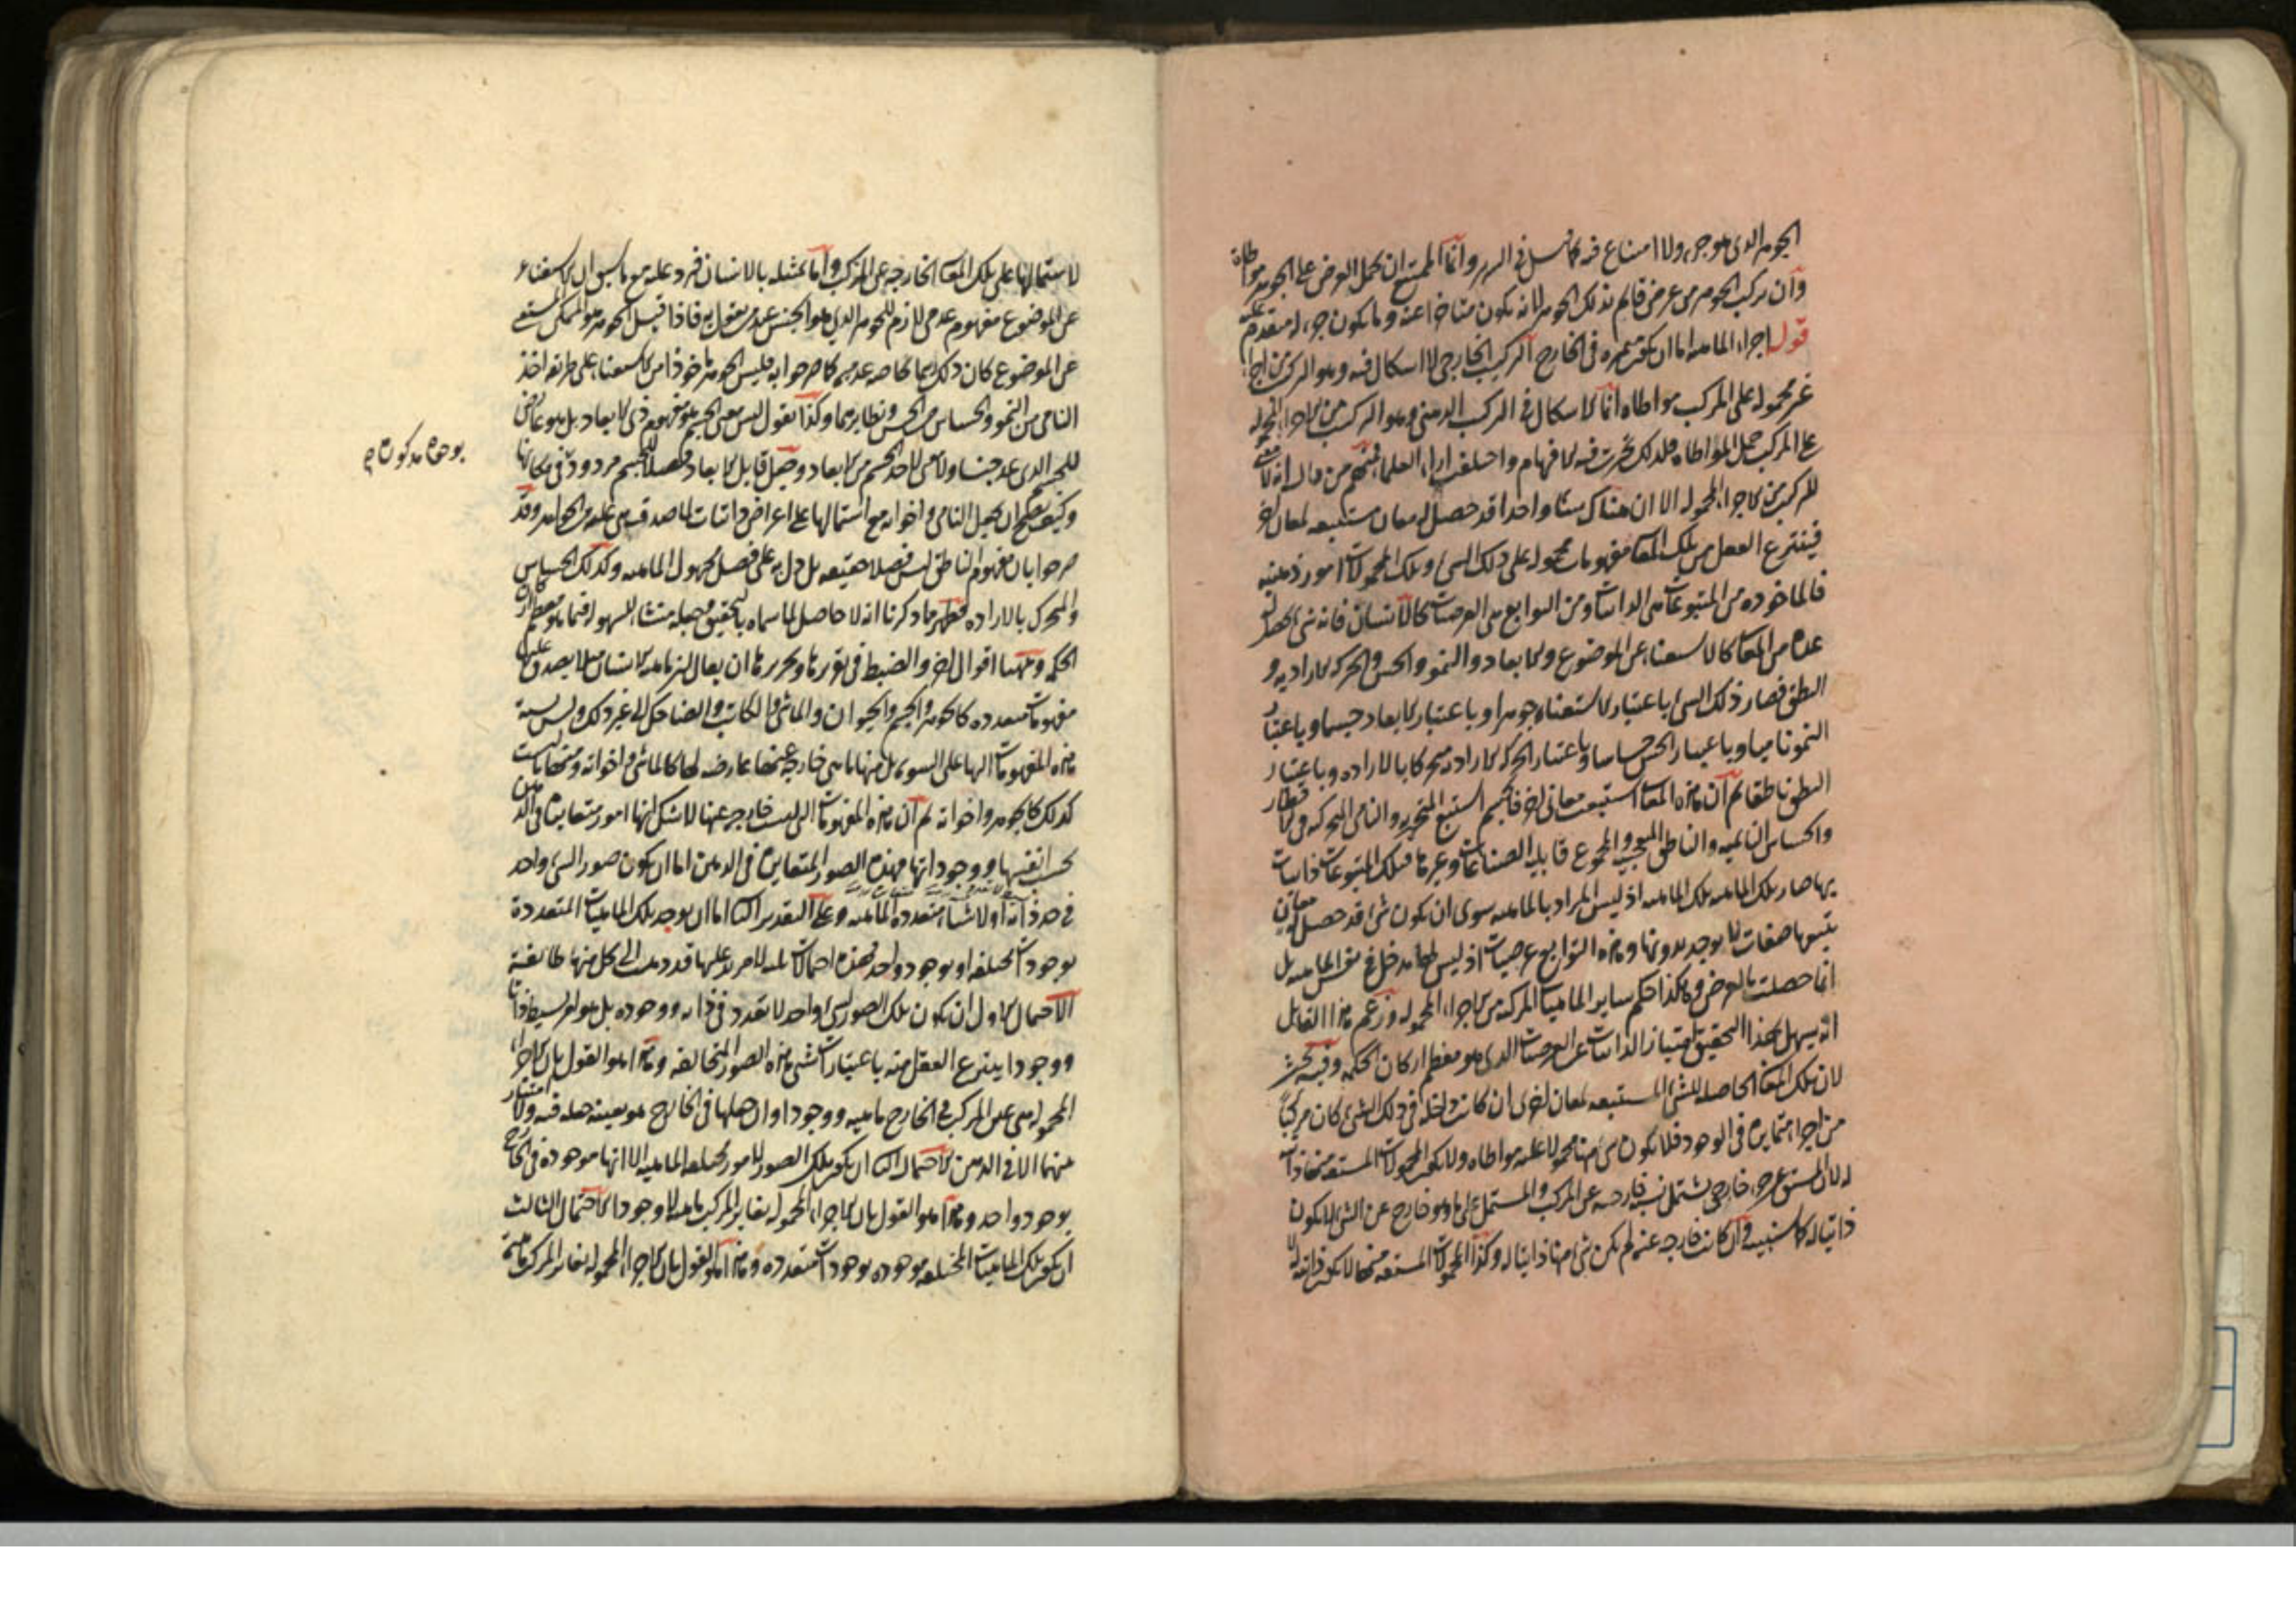 الجوهر الذى هو جزءه ولا امتناع فيه كما قيل فى السرير وانما الممتنع ان يحمل العرض على الجوهر مواطاة
وان تركب الجوهر من عرض قايم بذلك الجوهر لانه يكون متاخرا عنه وما يكون جزء له متقدم عليه
قوله اجزاء الماهيه اما ان يكون متميزه فى الخارج التركيب الخارجى لا اشكال فيه وهو التركيب من اجزاء
غير محموله على المركب مواطاه انما الاشكال فى التركيب الذهنى وهو التركيب من الاجزاء المحموله
على المركب حمل المواطاه فلذلك تحيرت فيه الافهام واختلفت اراء العلماء فمنهم من قال انه لا معنى
للتركيب من الاجزاء المحموله الا ان هناك شيئا واحدا قد حصل له معان مستتبعه لمعان اخر
فينتزع العقل من تلك المعانى مفهومات محموله على ذلك الشى وتلك المحمولات امور ذهنيه
فالماخوذه من المتبوعات هى الذاتيات ومن التوابع هى العرضيات كالانسان فانه شى حصل له
عدة من المعانى كالاستغناء عن الموضوع والابعاد والنمو والحس والحركه الاراديه و
النطق فصار ذلك الشى باعتبار الاستغناء جوهرا وباعتبار الابعاد جسما وباعتبار
النمو ناميا وباعتبار الحس حساسا وباعتبار الحركه الاراديه متحركا بالاراده وباعتبار
النطق ناطقا ثم ان هذه المعانى استتبعت معانى اخر فالجسم استتبع التحيز والنامى التحرك فى الاقطار
والحساس النايميه والناطق التعجب والمجموع قابليه الصناعات وغيرها فتلك المتبوعات ذاتيات
بها صار تلك الماهيه تلك الماهيه اذ ليس المراد بالماهيه سوى ان يكون شى قد حصل له معان
يتبعها صفات لا يوجد بدونها وهذه التوابع عرضيات اذ ليس لها مدخل فى نفس الماهيه بل
انما حصلت بالعرض وهكذا حكم ساير الماهيات المركبه من الاجزاء المحموله وزعم هذا القايل
انه يسهل بهذا التحقيق امتياز الذاتيات عن العرضيات الذى هو معظم اركان الحكمه وفيه بحث
لان تلك المعانى الحاصله للشى المستتبعه لمعان اخرى ان كانت داخله فى ذلك الشى كان مركبا
من اجزاء متمايزه فى الوجود فلا يكون شى منها محمولا عليه مواطاه ولا يكون المحمولات المشتقه منها ذاتيات
له لان المشتق من جزء خارجى يشتمل نسبه خارجه عن المركب والمشتمل على ما هو خارج عن الشى لا يكون
ذاتيا له كما ستبينه وان كانت خارجه عنه لم يكن شى منها ذاتيا له وكذا المحمولات المشتقه منها لا يكون ذاتيه له
لاشتمالها على تلك المعانى الخارجه عن المركب واما تمثيله بالانسان فيرد عليه مع ما سبق ان الاستغناء
عن الموضوع مفهوم عدمى لازم للجوهر الذى هو الجنس عند من يقول به فاذا قيل الجوهر هو الممكن المستغنى
عن الموضوع كان ذلك رسما بخاصه عدميه كما صرحوا به فليس الجوهر ماخوذا من الاستغناء على طريقه اخذ
النامى من النمو والحساس من الحس ونظايرهما وكذا نقول ليس معنى الجسم هو مفهوم ذى الابعاد بل هو عارض
للجسم الذى عد جنسا ولا معنى لاخذ الجسم من الابعاد وجعل قابل الابعاد فصلا للجسم مردود فى مكانها
وكيف يصح ان يجعل النامى واخواته مع اشتمالها على اعراض ذاتيات لما صدقت هى عليه من الجواهر وقد
صرحوا بان مفهوم الناطق ليس فصلا حقيقه بل دل به على فصل مجهول الماهيه وكذلك الحساس
والمتحرك بالاراده فظهر مما ذكرنا انه لا حاصل لما سماه بالتحقيق وجعله منشاء لسهوله اقتناء ما هو معظم اركان
الحكمه وههنا اقوال اخر والضبط فى تقريرها وتحريرها ان يقال ان ماهيه الانسان مثلا يصدق عليها
مفهومات متعدده كالجوهر والجسم والحيوان والماشى والكاتب والضاحك الى غير ذلك وليس نسبة
هذه المفهومات اليها على السويه بل منها ما هى خارجه عنها عارضه لها كالماشى واخواته ومنها ما ليست
كذلك كالجوهر واخواته ثم ان هذه المفهومات التى ليست خارجه عنها لا شك انها امور متغايره فى الذهن
بحسب انفسها ووجوداتها فهذه الصور المتغايره فى الذهن اما ان يكون صور الشى واحد
فى حد ذاته او لاشياء متعدده الماهيه وعلى التقدير الثانى اما ان يوجد تلك الماهيات المتعددة
بوجودات مختلفه او بوجود واحد فهذه احتمالات ثلثه لا مزيد عليها قد ذهبت الى كل منها طايفة
الاحتمال الاول ان يكون تلك الصور لشى واحد لا تعدد فى ذاته ووجوده بل هو امر بسيط ذاتا
ووجودا ينتزع العقل منه باعتبارات شتى هذه الصور المتخالفه وهذا هو القول بان الاجزاء
المحموله هى عين المركب فى الخارج ماهيه ووجودا وان جعلها فى الخارج هو بعينه جعله فيه ولا امتياز
بينهما الا فى الذهن الاحتمال الثانى ان يكون تلك الصور لامور مختلفه الماهيه الا انها موجوده فى الخارج
بوجود واحد وهذا هو القول بان الاجزاء المحموله تغاير المركب ماهيه لا وجودا الاحتمال الثالث
ان يكون تلك الماهيات المختلفه موجوده بوجودات متعدده وهذا هو القول بان الاجزاء المحموله تغاير المركب ماهية